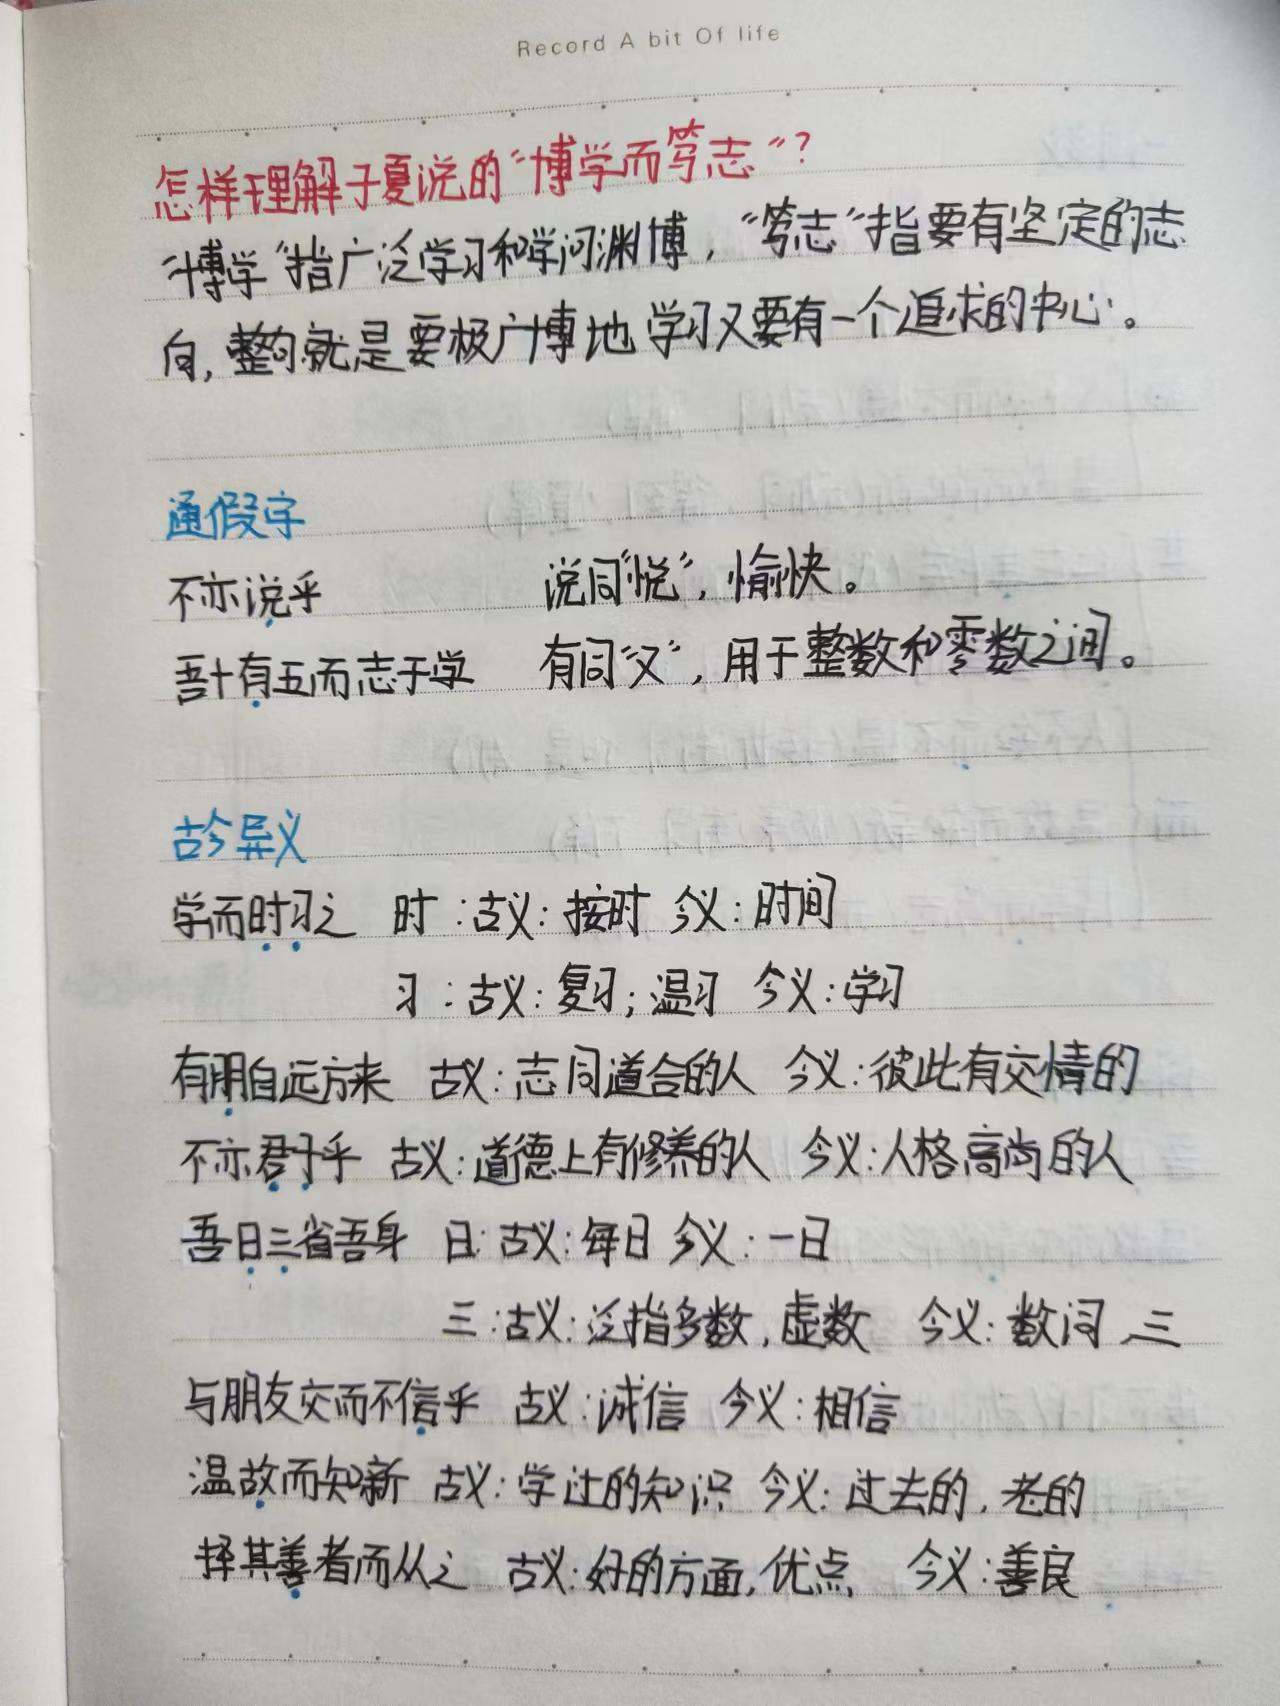 Record A bit Of life
怎样理解子夏说的“博学而笃志”?
“博学”指广泛学习和学问渊博，“笃志”指要有坚定的志
向，整句就是要极广博地学习又要有一个追求的中心。
通假字
不亦说乎 说同“悦”，愉快。
吾十有五而志于学 有同“又”，用于整数和零数之间。
古今异义
学而时习之 时：古义：按时 今义：时间
习：古义：复习；温习 今义：学习
有朋自远方来 古义：志同道合的人 今义：彼此有交情的
不亦君子乎 古义：道德上有修养的人 今义：人格高尚的人
吾日三省吾身 日：古义：每日 今义：一日
三：古义：泛指多数，虚数 今义：数词 三
与朋友交而不信乎 古义：诚信 今义：相信
温故而知新 古义：学过的知识 今义：过去的，老的
择其善者而从之 古义：好的方面，优点 今义：善良